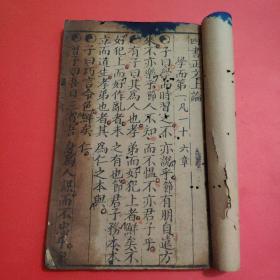 四書正文上論
學而第一 凡十六章
子曰學而時習之不亦說乎節有朋自遠方
來不亦樂乎節人不知而不慍不亦君子乎
有子曰其為人也孝弟而好犯上者鮮矣不
好犯上而好作亂者未之有也節君子務本本
立而道生孝弟也者其為仁之本與
子曰巧言令色鮮矣仁
曾子曰吾日三省吾身為人謀而不忠乎